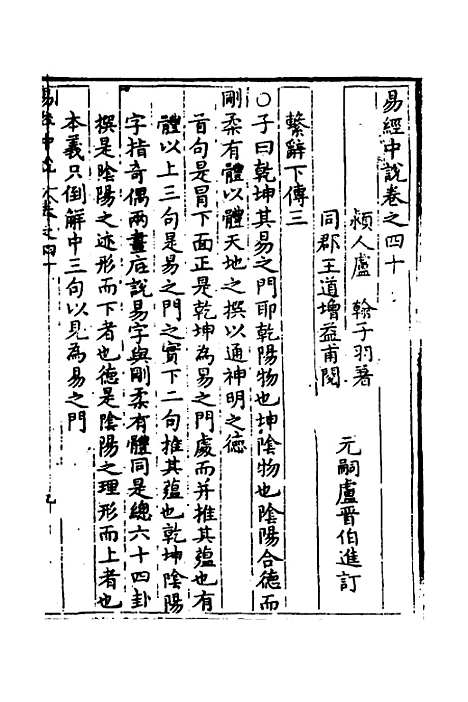 易經中說卷之四十
潁人盧　翰子羽著
同郡王道增益甫閱
元嗣盧晋伯進訂
繫辭下傳三
○子曰乾坤其易之門耶乾陽物也坤陰物也陰陽合德而
剛柔有體以體天地之撰以通神明之德
首句是冒下面正是乾坤為易之門處而并推其蘊也有
體以上三句是易之門之實下二句推其蘊也乾坤陰陽
字指奇偶兩畫底說易字與剛柔有體同是總六十四卦
撰是陰陽之迹形而下者也德是陰陽之理形而上者也
本義只倒解中三句以見為易之門
易經中說卷之四十